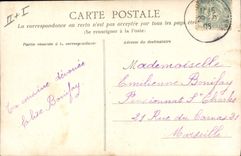 II + I
CARTE POSTALE
La correspondance au recto n'est pas acceptée par tous les pays étrangers
(Se renseigner à la Poste)
Partie réservée à la correspondance
Adresse du destinataire
Ta cousine dévouée
Elise Bonifay
Mademoiselle
Emilienne Bonifay
Pensionnat St Charles
21 Rue du
Marseille